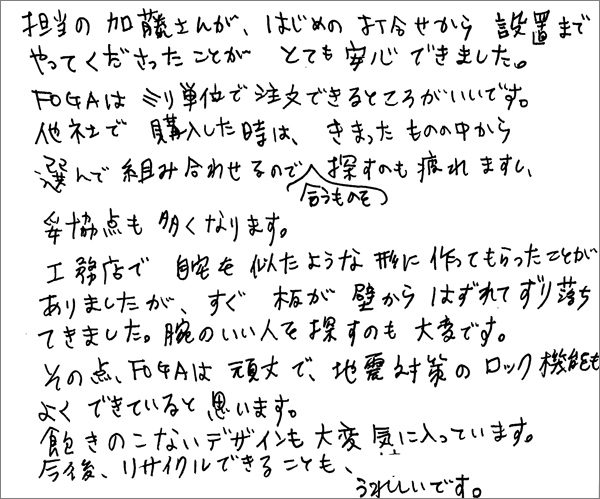 担当の加藤さんが、はじめの打合せから設置まで
やってくださったことがとても安心できました。
FOGAはミリ単位で注文できるところがいいです。
他社で購入した時は、きまったものの中から
選んで組み合わせるので探すのも疲れますし、
合うものを
妥協点も多くなります。
工務店で自宅を似たような形に作ってもらったことが
ありましたが、すぐ板が壁からはずれてずり落ち
てきました。腕のいい人を探すのも大変です。
その点、FOGAは頑丈で、地震対策のロック機能も
よくできていると思います。
飽きのこないデザインも大変気に入っています。
今後、リサイクルできることも、
うれしいです。